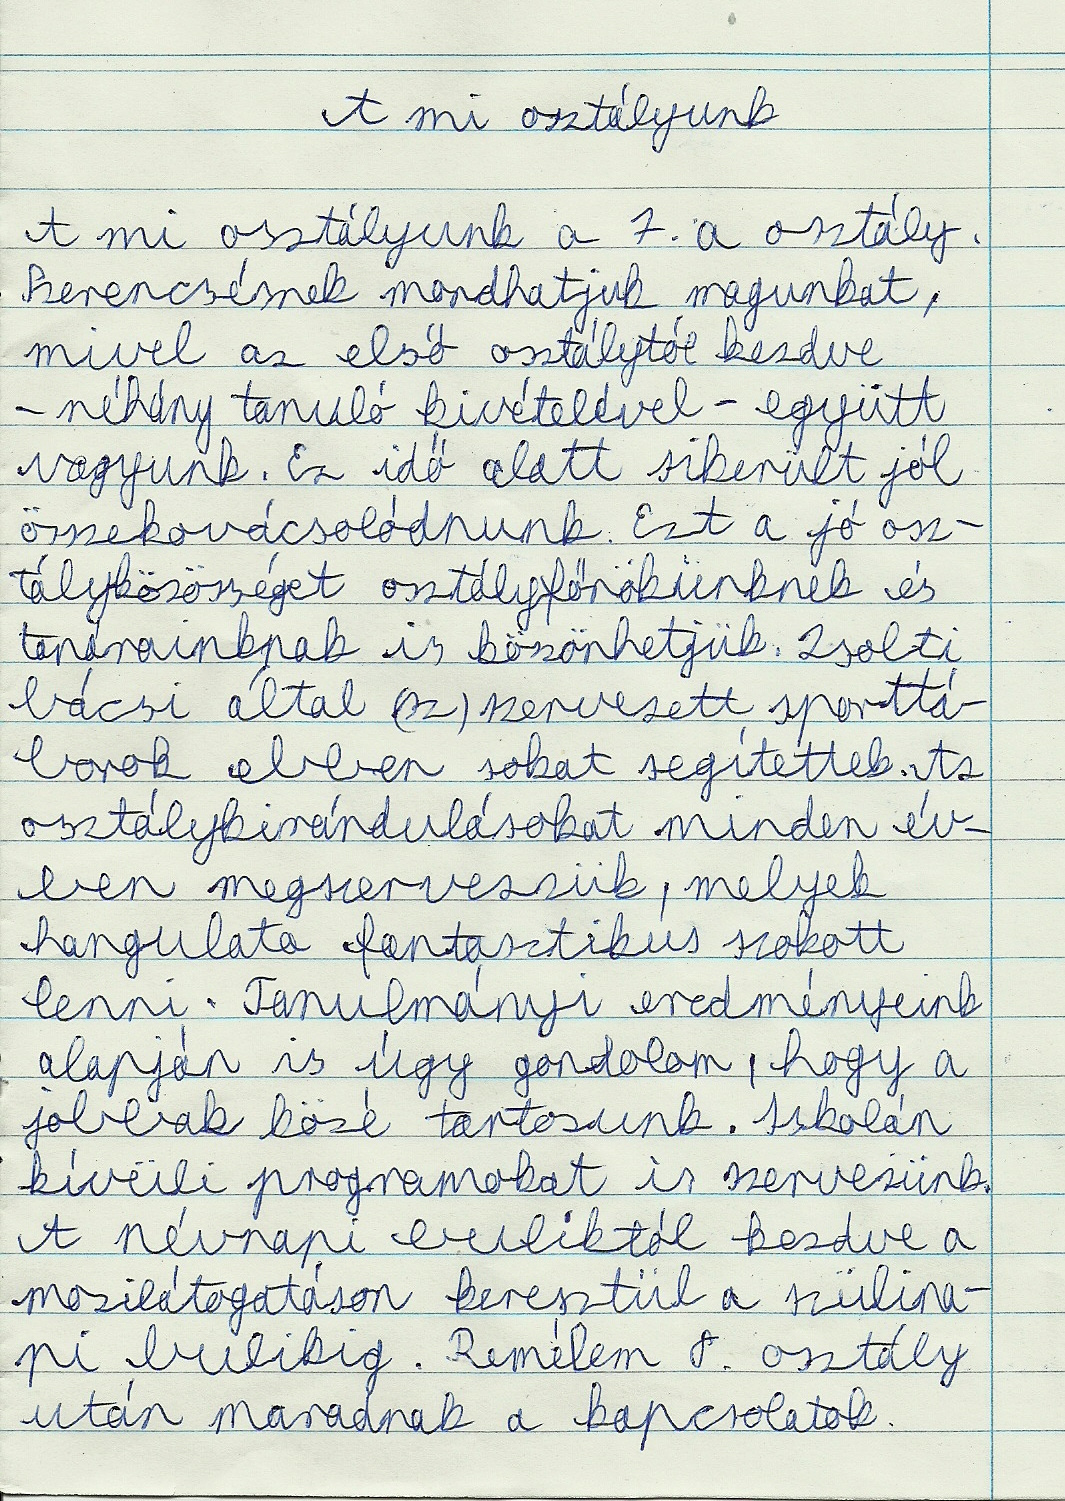 A mi osztályunk
A mi osztályunk a 7. a osztály.
Szerencsésnek mondhatjuk magunkat,
mivel az első osztálytól kezdve
- néhány tanuló kivételével - együtt
vagyunk. Ez idő alatt sikerült jól
összekovácsolódnunk. Ezt a jó osz-
tályközösséget osztályfőnökünknek és
tanárainknak is köszönhetjük. Zsolti
bácsi által (sz) szervezett sporttá-
borok ebben sokat segítettek. Az
osztálykirándulásokat minden év-
ben megszervezzük, melyek
hangulata fantasztikus szokott
lenni. Tanulmányi eredményeink
alapján is úgy gondolom, hogy a
jobbak közé tartozunk. Iskolán
kívüli programokat is szervezünk.
A névnapi buliktól kezdve a
mozilátogatáson keresztül a szülina-
pi bulikig. Remélem 8. osztály
után maradnak a kapcsolatok.